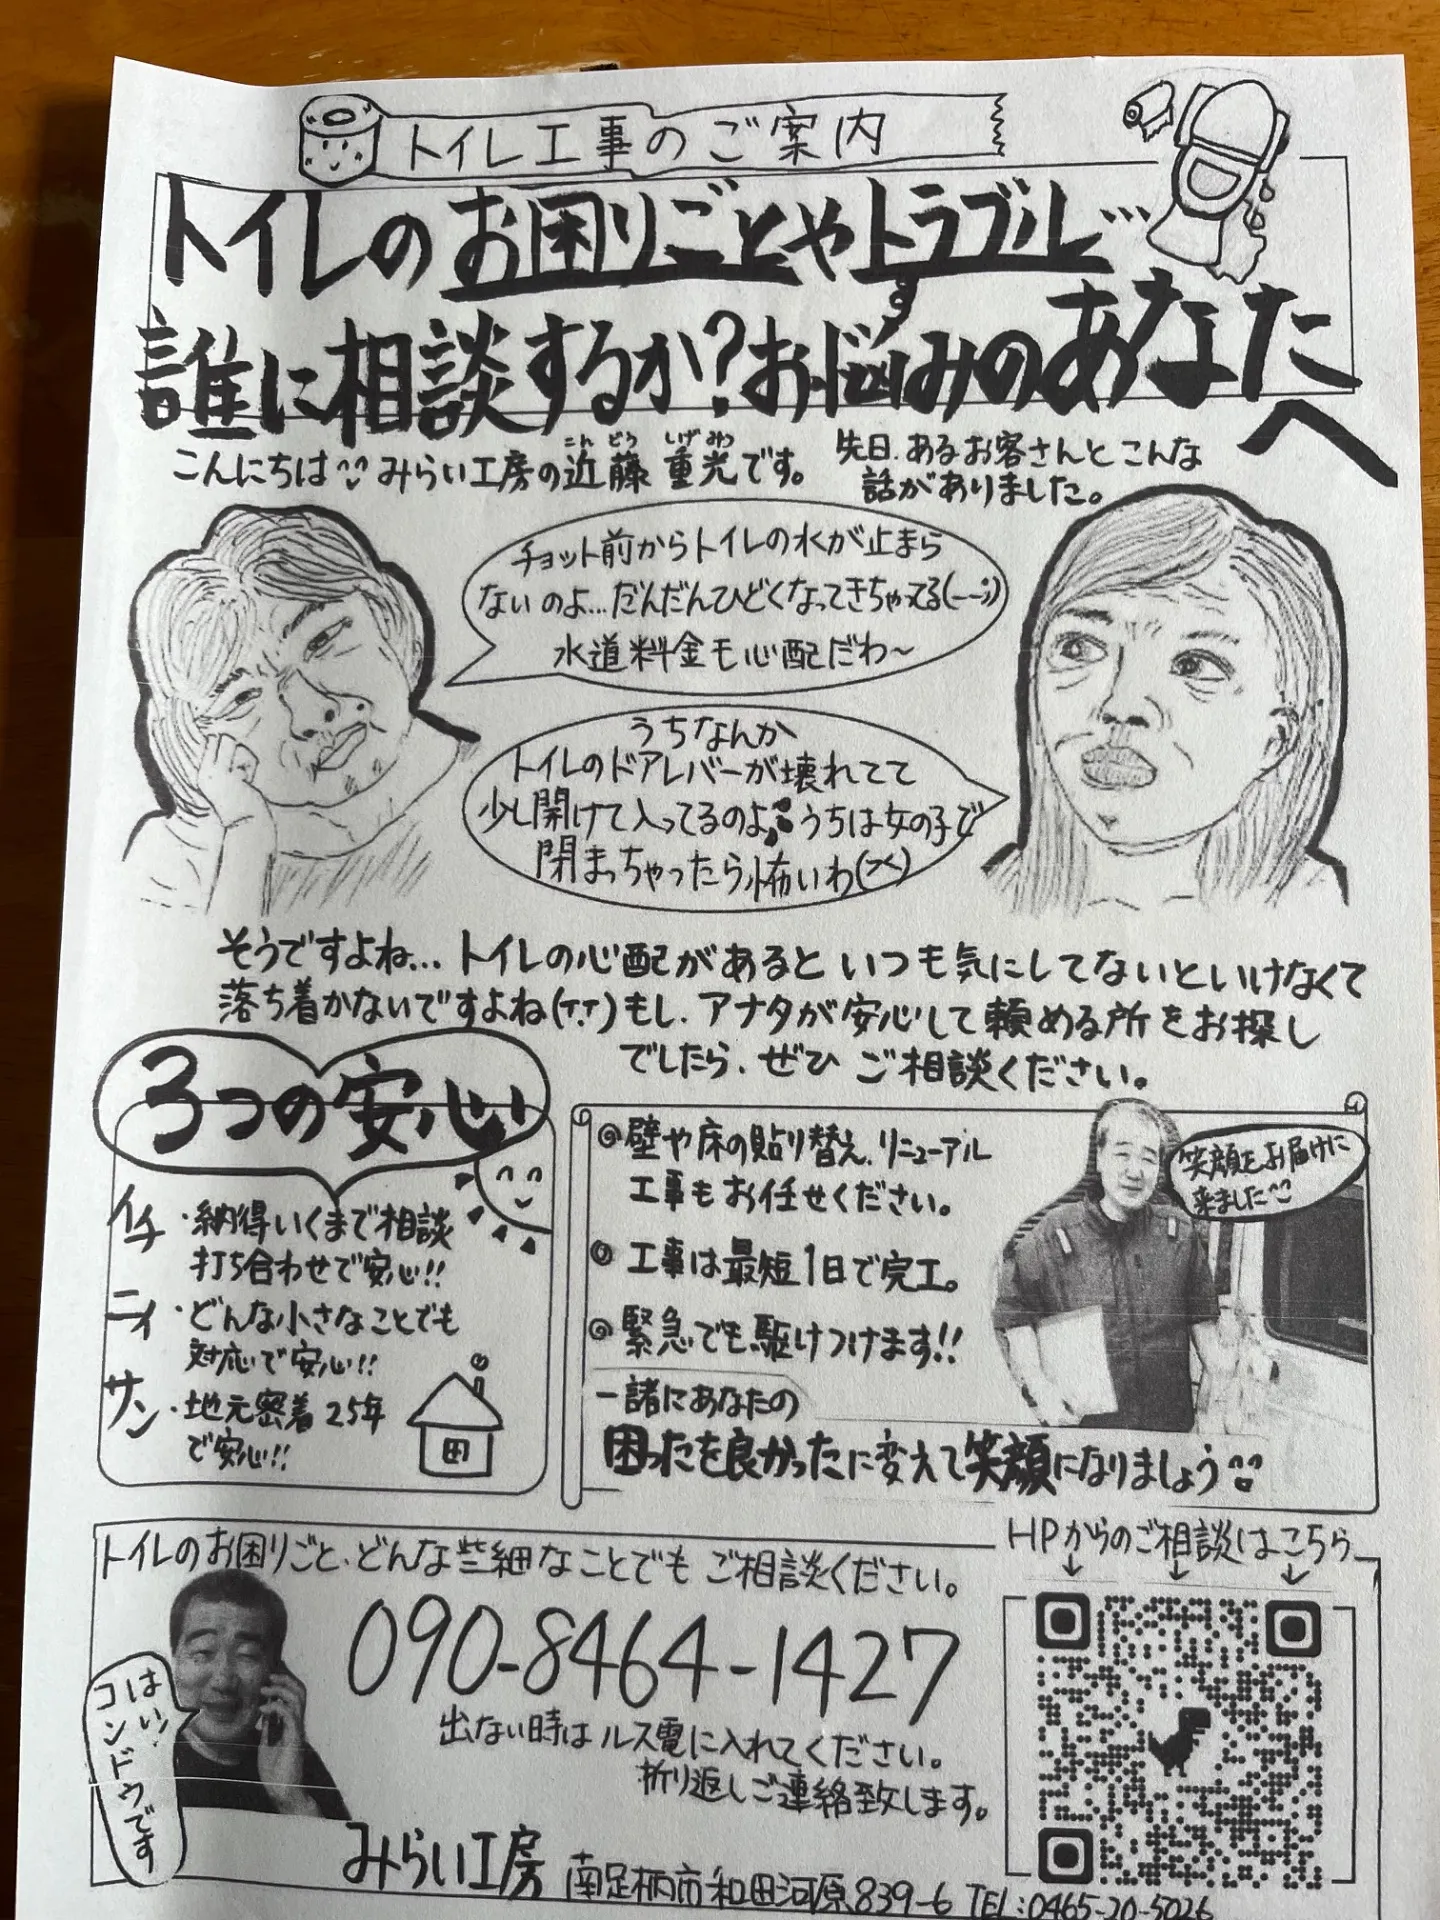 トイレ工事のご案内
トイレのお困りごとやトラブル…
誰に相談するか?お悩みのあなたへ
こんどう しげみつ
こんにちは みらい工房の近藤 重光です。
先日、あるお客さんとこんな
話がありました。
チョット前からトイレの水が止まら
ないのよ…だんだんひどくなってきちゃってる(ーー;)
水道料金も心配だわ~
うちなんか
トイレのドアレバーが壊れてて
少し開けて入ってるのよ うちは女の子で
閉まっちゃったら怖いわ(><)
そうですよね… トイレの心配があるといつも気にしてないといけなくて
落ち着かないですよね(T.T)もし、アナタが安心して頼める所をお探し
でしたら、ぜひ ご相談ください。
3つの安心
イチ・納得いくまで相談
打ち合わせで安心!!
ニィ・どんな小さなことでも
対応で安心!!
サン・地元密着25年
で安心!!
◎壁や床の貼り替え、リニューアル
工事もお任せください。
◎工事は最短1日で完工。
◎緊急でも駆けつけます!!
笑顔をお届けに
来ました
一諸にあなたの
困ったを良かったに変えて笑顔になりましょう
トイレのお困りごと、どんな些細なことでもご相談ください。
HPからのご相談はこちら
↓ ↓ ↓
090-8464-1427
出ない時はルス電に入れてください。
折り返しご連絡致します。
はい!
コンドウです
みらい工房 南足柄市和田河原839-6 TEL:0465-20-5026